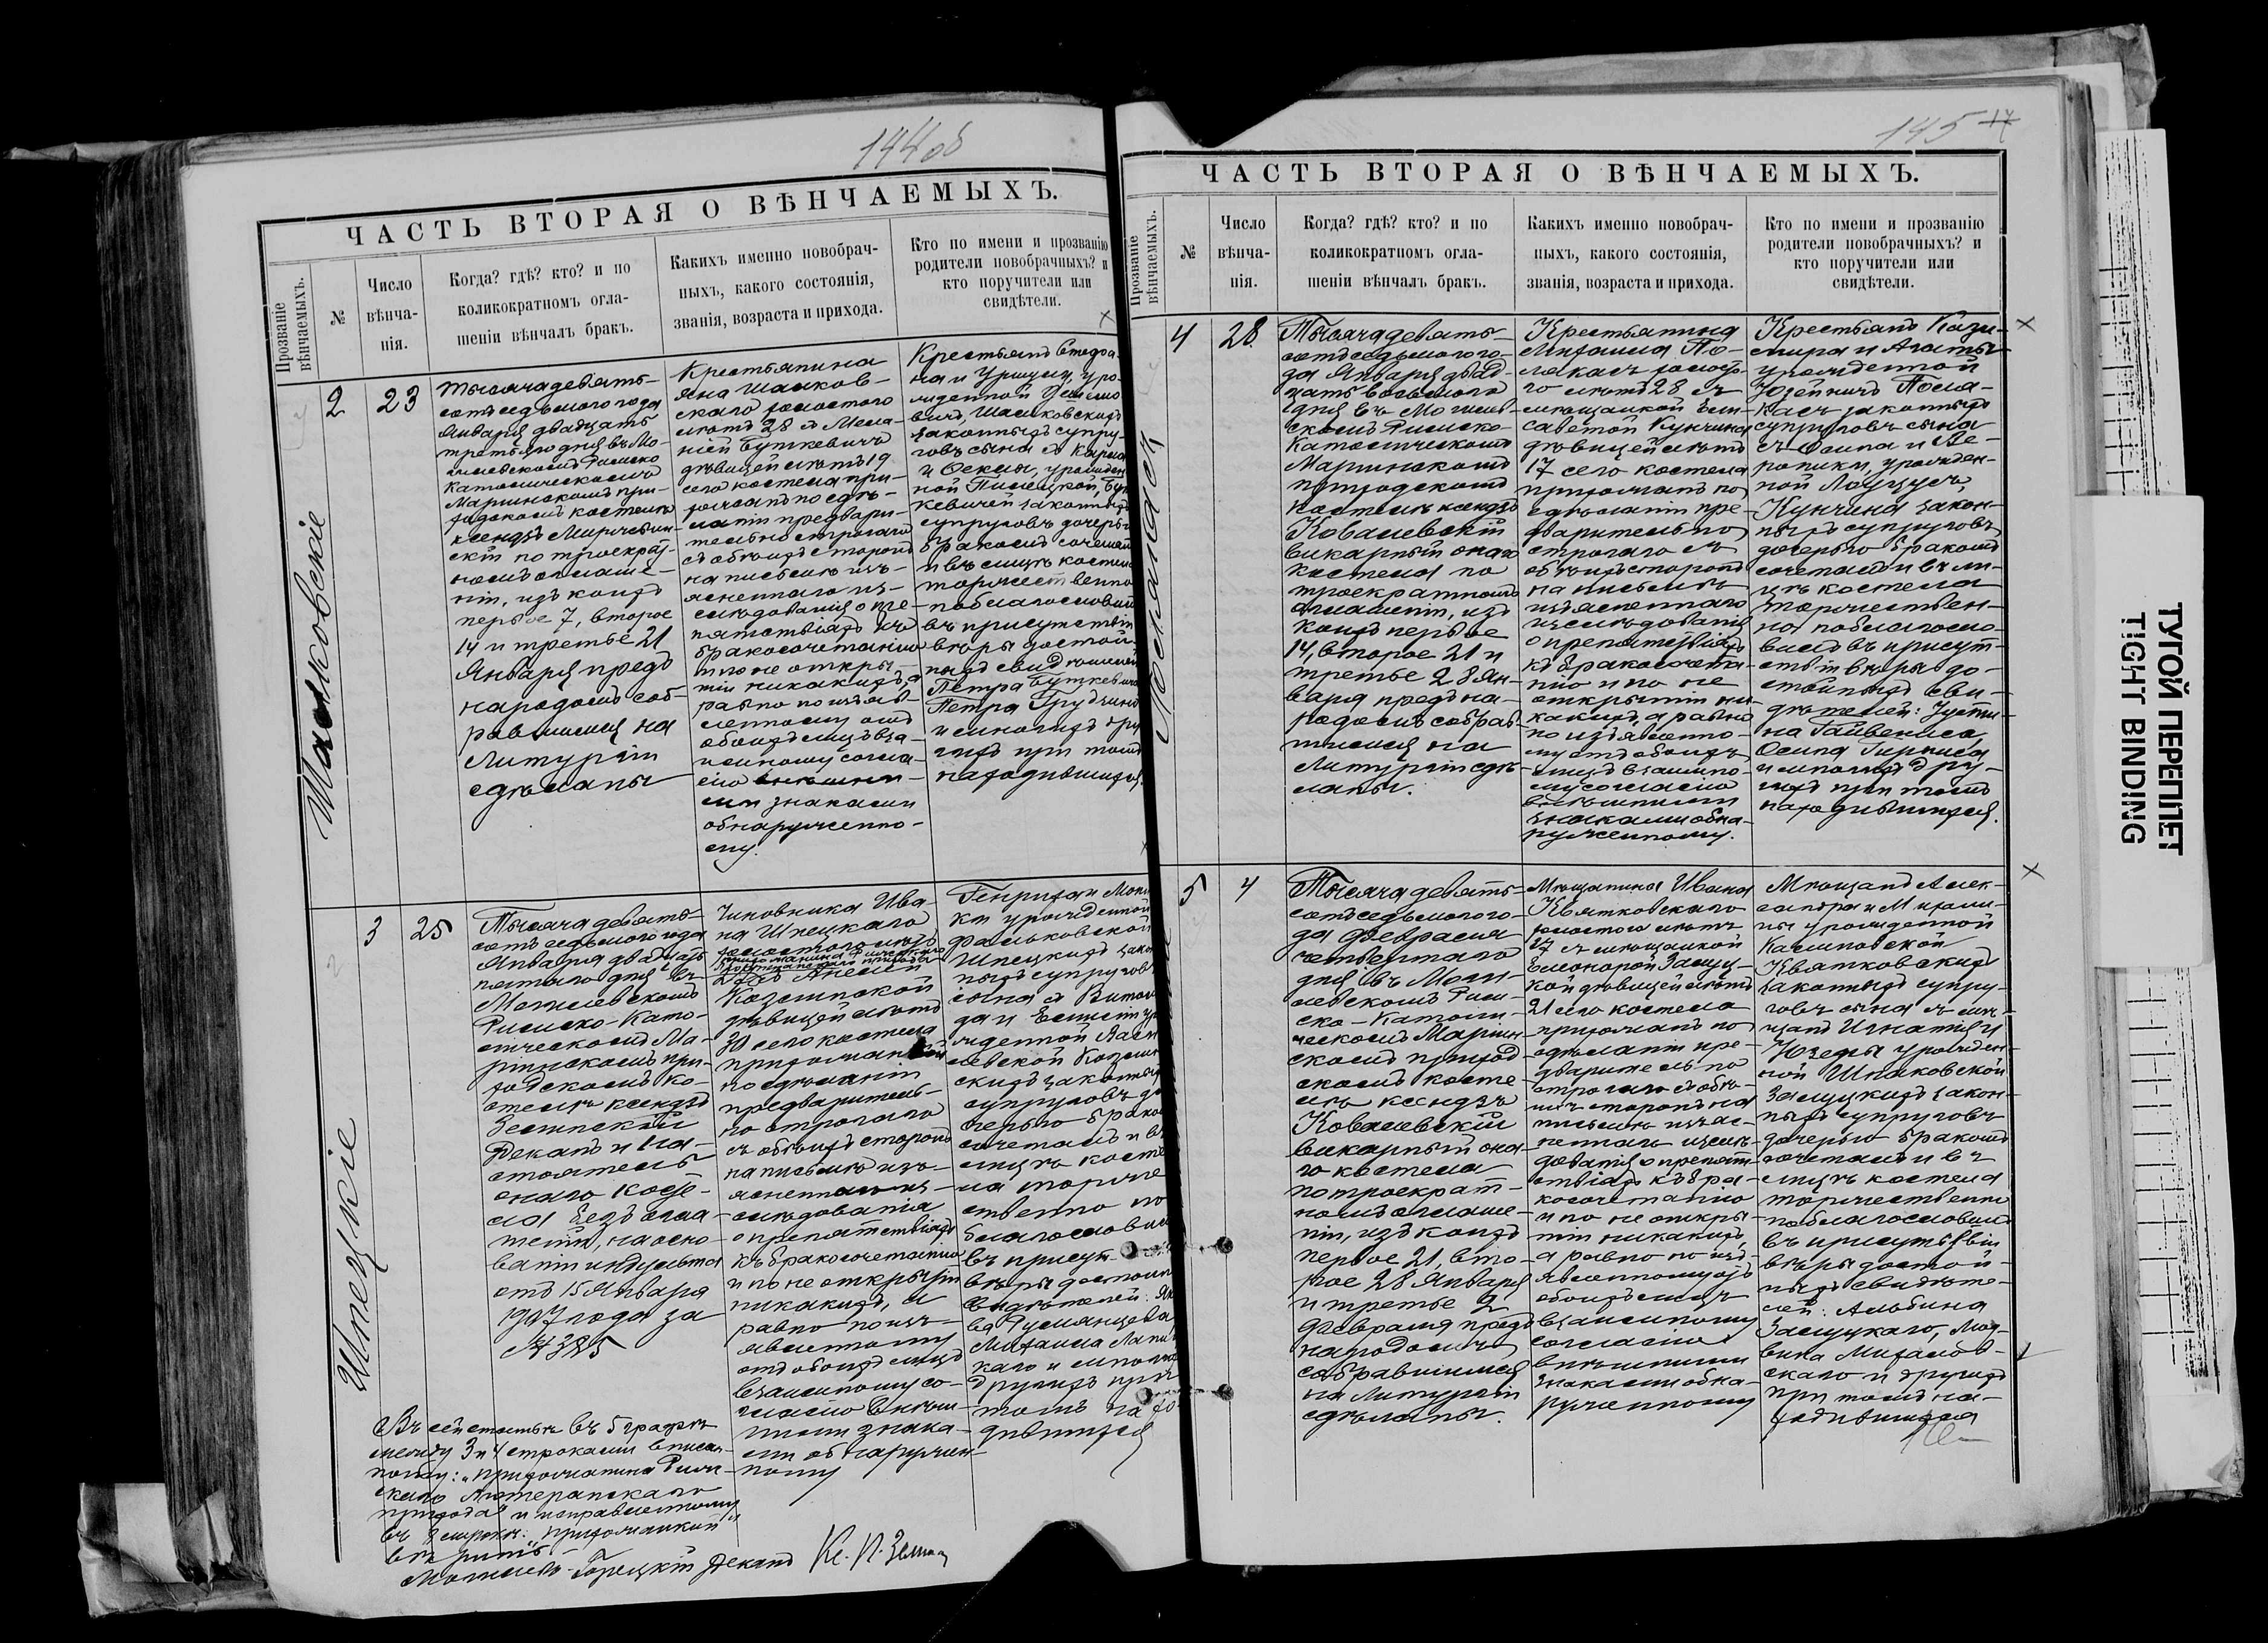 144 об
ЧАСТЬ ВТОРАЯ О ВѢНЧАЕМЫХЪ.
Прозваніе вѣнчаемыхъ.
№
Число вѣнчанія.
Когда? гдѣ? кто? и по
коликократномъ огла-
шеніи вѣнчалъ бракъ.
Какихъ именно новобрач-
ныхъ, какого состоянія,
званія, возраста и прихода.
Кто по имени и прозванію
родители новобрачныхъ? и
кто поручители или
свидѣтели.
2
23
Тысяча девять-
сотъ седьмого года
Января двадцать
третьяго дня въ Мо-
гилевскомъ Римско
Католическомъ
Маріинскомъ при-
ходскомъ костелѣ
ксендзъ
по троекрат-
номъ оглаше-
ніи, изъ коихъ
первое 7, второе
14 и третье 21
Января предъ
народомъ соб-
равшимся на
Литургіи
сдѣланы
Крестьянина
Яна Шаснков-
скаго холостого
лѣтъ 28 съ Мела-
ніей Буткевичъ
дѣвицей лѣтъ 19
сего костела при-
хожанъ по сдѣ-
ланіи предвари-
тельно строгаго
съ обѣихъ сторонъ
на письмѣ изъ-
ясненнаго из-
слѣдованія о пре-
пятствіяхъ къ
бракосочетанію
и по не откры-
тіи никакихъ, а
равно по изъяв-
ленному отъ
обоихъ лицъ вза-
имному согла-
сію внѣшни-
ми знаками
обнаруженно-
му.
Крестьянъ Стефа-
на и Уршули, уро-
жденной
законныхъ супру-
говъ сына съ
и Феклы, урожден
ной
законныхъ
супруговъ дочерью
бракомъ сочеталъ
и въ лицѣ костела
торжественно
поблагословилъ
въ присутствіи
вѣры достой-
ныхъ свидѣтелей
Петра Буткевича
Петра
и многихъ дру
гихъ при томъ
находившихся.
3
25
Шпецкіе
Тысяча девять-
сотъ седьмого года
Января двадцать
пятого дня въ
Могилевскомъ
Римско-Като-
лическомъ Ма-
ріинскомъ при-
ходскомъ ко-
стелѣ ксендзъ
Деканъ и На-
стоятель
онаго косте-
ла безъ огла-
шеній, на осно-
ваніи индульта
отъ 15 Января
1907 года за
№ 385
Чиновника Ива-
на Шпецкаго
холостого лѣтъ
прихожанина Римскаго
Лютеранскаго прихода
Казимской
дѣвицей лѣтъ
30 сего костела
прихожанкой
по сдѣланіи
предваритель-
но строгаго
съ обѣихъ сторонъ
на письмѣ изъ-
ясненнаго из-
слѣдованія
о препятствіяхъ
къ бракосочетанію
и по не открытіи
никакихъ, а
равно по изъ-
явленному
отъ обоихъ лицъ
взаимному со-
гласію внѣш-
ними знака-
ми обнаружен-
ному
Генриха и Мони
ки урожденной
Фальковской
Шпецкихъ закон
ныхъ супруговъ
сына съ Витоль
да и
законныхъ
супруговъ до
черью бракомъ
сочеталъ и въ
лицѣ косте
ла торже
ственно по
благословилъ
въ присут
вѣры достойн
свидѣтелей:
Румянцева
Михаила
и многихъ
другихъ при
томъ нахо
дившихся
Въ сей статьѣ въ 5 графѣ
между 3 и 4 строками вписан-
ному: „прихожанина Рим-
скаго Лютеранскаго
прихода“ и исправленному
въ 8 строкѣ: „прихожанкой“
вѣрить –
Могилево-Горецкій Деканъ Кс. П.
145 17
ЧАСТЬ ВТОРАЯ О ВѢНЧАЕМЫХЪ.
Прозваніе вѣнчаемыхъ.
№
Число
вѣнча-
нія.
Когда? гдѣ? кто? и по
коликократномъ огла-
шеніи вѣнчалъ бракъ.
Какихъ именно новобрач-
ныхъ, какого состоянія,
званія, возраста и прихода.
Кто по имени и прозванію
родители новобрачныхъ? и
кто поручители или
свидѣтели.
4
28
Тысяча девять-
сотъ седьмого го-
да Января двад-
цать восьмого
дня въ Могилев-
скомъ Римско-
Католическомъ
Маріинскомъ
приходскомъ
костелѣ ксендзъ
Ковалевскій
викарный онаго
костела по
троекратномъ
оглашеніи, изъ
коихъ первое
14, второе 21 и
третье 28 Ян-
варя предъ на-
родомъ собрав-
шимся на
Литургіи сдѣ-
ланы.
Крестьянина
Михаила По-
лякасъ холосто-
го лѣтъ 28 съ
мѣщанкой Ели-
саветой Кунчина
дѣвицей лѣтъ
17 сего костела
прихожанъ по
сдѣланіи пре-
дварительно
строгаго съ
обѣихъ сторонъ
на письмѣ
изъясненнаго
изслѣдованія
о препятствіяхъ
къ бракосочета-
нію и по не
открытіи ни-
какихъ, а равно
по изъявленно-
му отъ обоихъ
лицъ взаимно-
му согласію
внѣшними
знаками обна-
руженному.
Крестьянъ Кази-
мира и Агаты
урожденной
Юзейничъ Поля-
касъ законныхъ
супруговъ сына
съ Осипа и Ве-
роники, урожден-
ной
Кунчина закон-
ныхъ супруговъ
дочерью бракомъ
сочеталъ и въ ли-
цѣ костела
торжествен-
но поблагосло-
вилъ въ присут-
ствіи вѣры до-
стойныхъ сви-
дѣтелей: Усти-
на
Осипа
и многихъ дру-
гихъ при томъ
находившихся.
5
4
Тысяча девять-
сотъ седьмого го-
да Февраля
четвертаго
дня въ Моги-
левскомъ Рим-
ско-Католи-
ческомъ Маріин
скомъ приход-
скомъ косте
лѣ ксендзъ
Ковалевскій
викарный она-
го костела
по троекрат-
номъ оглаше-
ніи, изъ коихъ
первое 21, вто-
рое 28 Января
и третье 2
Февраля предъ
народомъ
собравшимся
на Литургіи
сдѣланы.
Мѣщанина Ивана
Квятковскаго
холостого лѣтъ
27 съ мѣщанкой
Елеонорой Заслуц-
кой дѣвицей лѣтъ
21 сего костела
прихожанъ по
сдѣланіи пре-
дварительно
строгаго съ обѣ-
ихъ сторонъ на
письмѣ изъяс-
неннаго изслѣ-
дованія о препят-
ствіяхъ къ бра-
косочетанію
и по не откры-
тіи никакихъ,
а равно по изъ-
явленному отъ
обоихъ лицъ
взаимному
согласію
внѣшними
знаками обна-
руженному
Мѣщанъ Алек-
сандра и Михали-
ны урожденной
Калиновской
Квятковскихъ
законныхъ супру-
говъ сына съ мѣ-
щанъ Игнатія и
Юзефы урожден-
ной Шпаковской
Заслуцкихъ закон-
ныхъ супруговъ
дочерью бракомъ
сочеталъ и въ
лицѣ костела
торжественно
поблагословилъ
въ присутствіи
вѣры достой-
ныхъ свидѣте-
лей: Альбина
Заслуцкаго, Люд-
вика Михалов-
скаго и другихъ
при томъ на-
ходившихся
ТУГОЙ ПЕРЕПЛЕТ
TIGHT BINDING